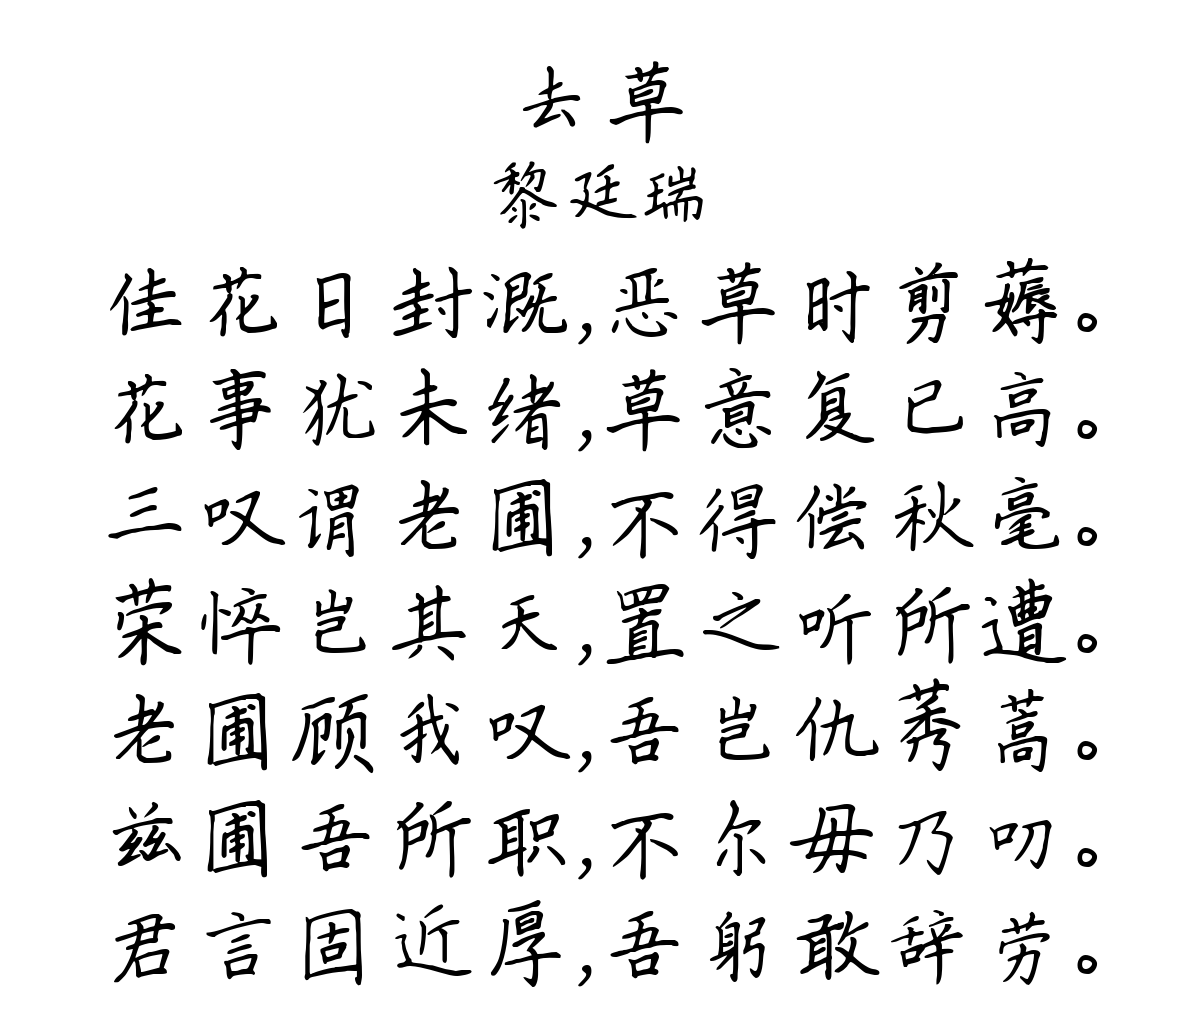 去草
黎廷瑞
佳花日封溉,恶草时剪薅。
花事犹未绪,草意复已高。
三叹谓老圃,不得偿秋毫。
荣悴岂其天,置之听所遭。
老圃顾我叹,吾岂仇莠蒿。
兹圃吾所职,不尔毋乃叨。
君言固近厚,吾躬敢辞劳。